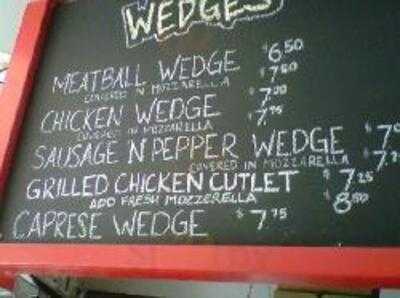 WEDGES
MEATBALL WEDGE $6.50
COVERED IN MOZZARELLA $7.50
CHICKEN WEDGE $7.00
COVERED IN MOZZARELLA $7.75
SAUSAGE N PEPPER WEDGE $7
COVERED IN MOZZARELLA $7.
GRILLED CHICKEN CUTLET $7.25
ADD FRESH MOZZERELLA $8.50
CAPRESE WEDGE $7.75